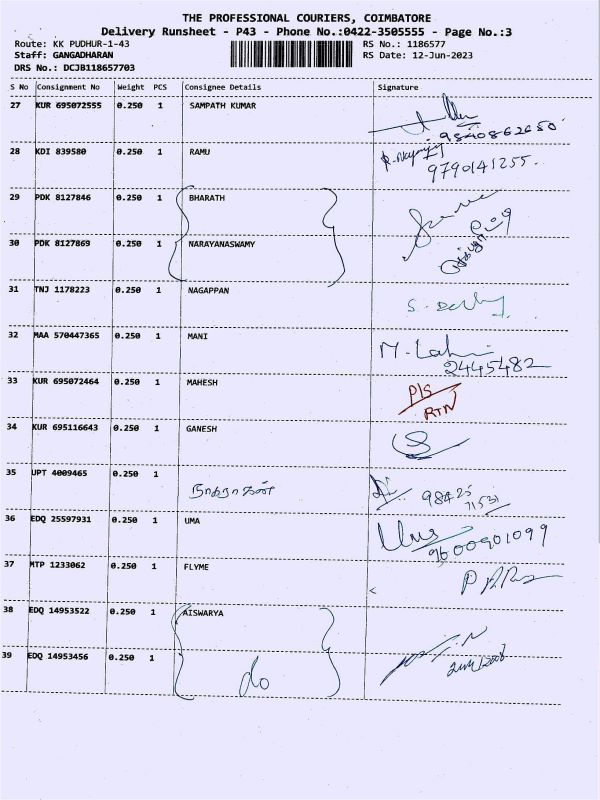 THE PROFESSIONAL COURIERS, COIMBATORE
Delivery Runsheet - P43 - Phone No.:0422-3505555 - Page No.:3
Route: KK PUDHUR-1-43 RS No.: 1186577
Staff: GANGADHARAN RS Date: 12-Jun-2023
DRS No.: DCJB118657703
S No Consignment No Weight PCS Consignee Details Signature
27 KUR 695072555 0.250 1 SAMPATH KUMAR
9840862650
28 KDI 839580 0.250 1 RAMU
9790141255.
29 PDK 8127846 0.250 1 BHARATH
30 PDK 8127869 0.250 1 NARAYANASWAMY
31 TNJ 1178223 0.250 1 NAGAPPAN
32 MAA 570447365 0.250 1 MANI
2445482
33 KUR 695072464 0.250 1 MAHESH P/S
RTN
34 KUR 695116643 0.250 1 GANESH
35 UPT 4009465 0.250 1 நாகராகன் 98425
71531
36 EDQ 25597931 0.250 1 UMA Uma
9600901099
37 MTP 1233062 0.250 1 FLYME
38 EDQ 14953522 0.250 1 AISWARYA
39 EDQ 14953456 0.250 1 do